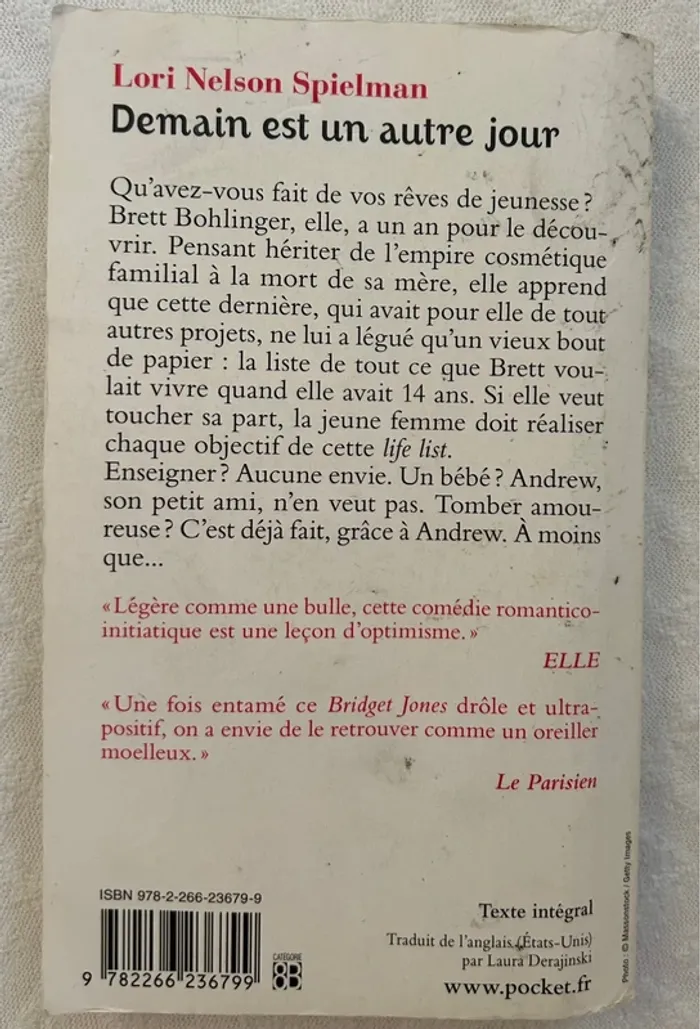 Lori Nelson Spielman
Demain est un autre jour
Qu'avez-vous fait de vos rêves de jeunesse ?
Brett Bohlinger, elle, a un an pour le décou-
vrir. Pensant hériter de l'empire cosmétique
familial à la mort de sa mère, elle apprend
que cette dernière, qui avait pour elle de tout
autres projets, ne lui a légué qu'un vieux bout
de papier : la liste de tout ce que Brett vou-
lait vivre quand elle avait 14 ans. Si elle veut
toucher sa part, la jeune femme doit réaliser
chaque objectif de cette life list.
Enseigner ? Aucune envie. Un bébé ? Andrew,
son petit ami, n'en veut pas. Tomber amou-
reuse ? C'est déjà fait, grâce à Andrew. À moins
que...
« Légère comme une bulle, cette comédie romantico-
initiatique est une leçon d'optimisme. »
ELLE
« Une fois entamé ce Bridget Jones drôle et ultra-
positif, on a envie de le retrouver comme un oreiller
moelleux. »
Le Parisien
ISBN 978-2-266-23679-9
9 782266 236799
CATÉGORIE
Texte intégral
Traduit de l'anglais (États-Unis)
par Laura Derajinski
www.pocket.fr
Photo : © Massonstock / Getty Images